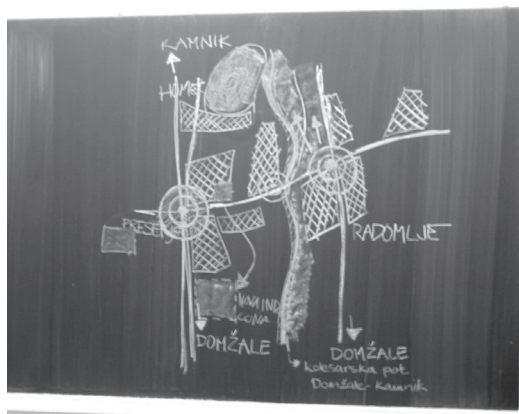 KAMNIK
HOMEC
PRESER
RADOMLJE
NOVA IND
CONA
DOMŽALE
DOMŽALE
kolesarska pot
Domžale-Kamnik